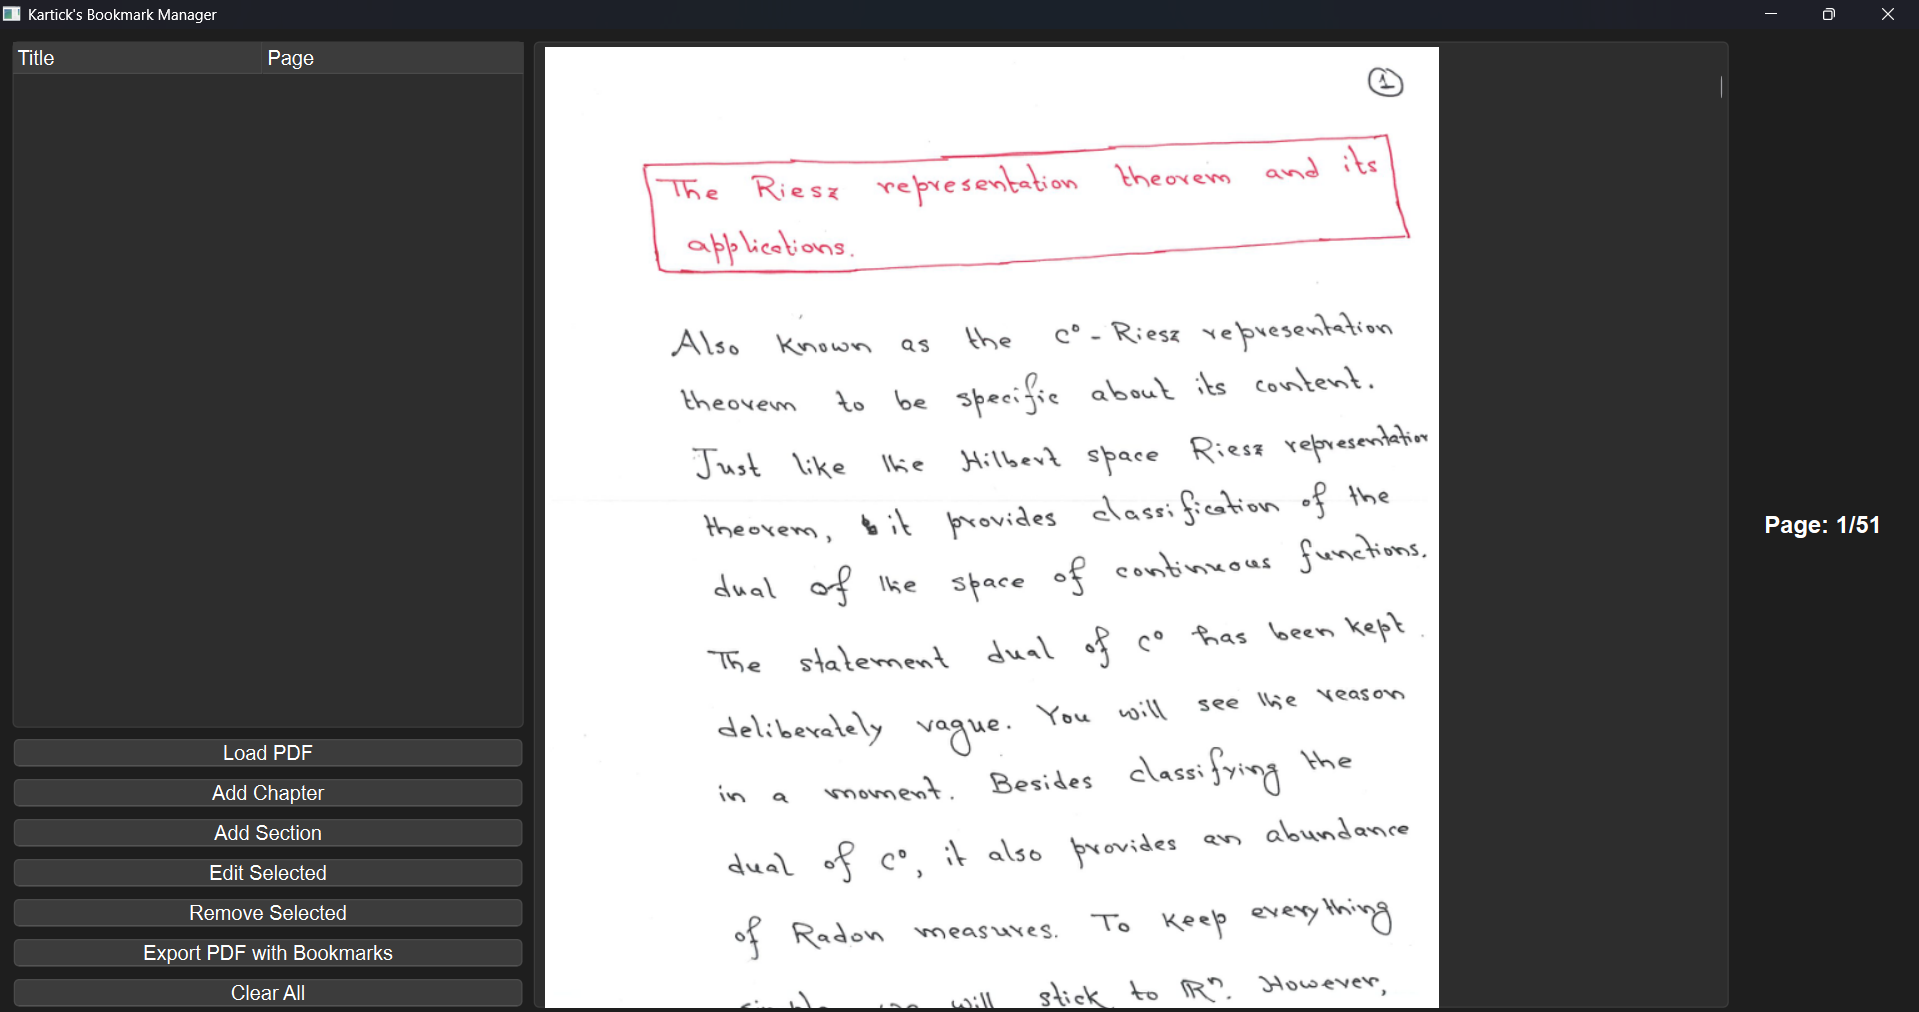 Kartick's Bookmark Manager
Title Page
Load PDF
Add Chapter
Add Section
Edit Selected
Remove Selected
Export PDF with Bookmarks
Clear All
1
The Riesz representation theorem and its
applications.
Also known as the C° - Riesz representation
theorem to be specific about its content.
Just like the Hilbert space Riesz representation
theorem, it provides classification of the
dual of the space of continuous functions.
The statement dual of C° has been kept
deliberately vague. You will see the reason
in a moment. Besides classifying the
dual of C°, it also provides an abundance
of Radon measures. To keep everything
will stick to ℝⁿ. However,
Page: 1/51